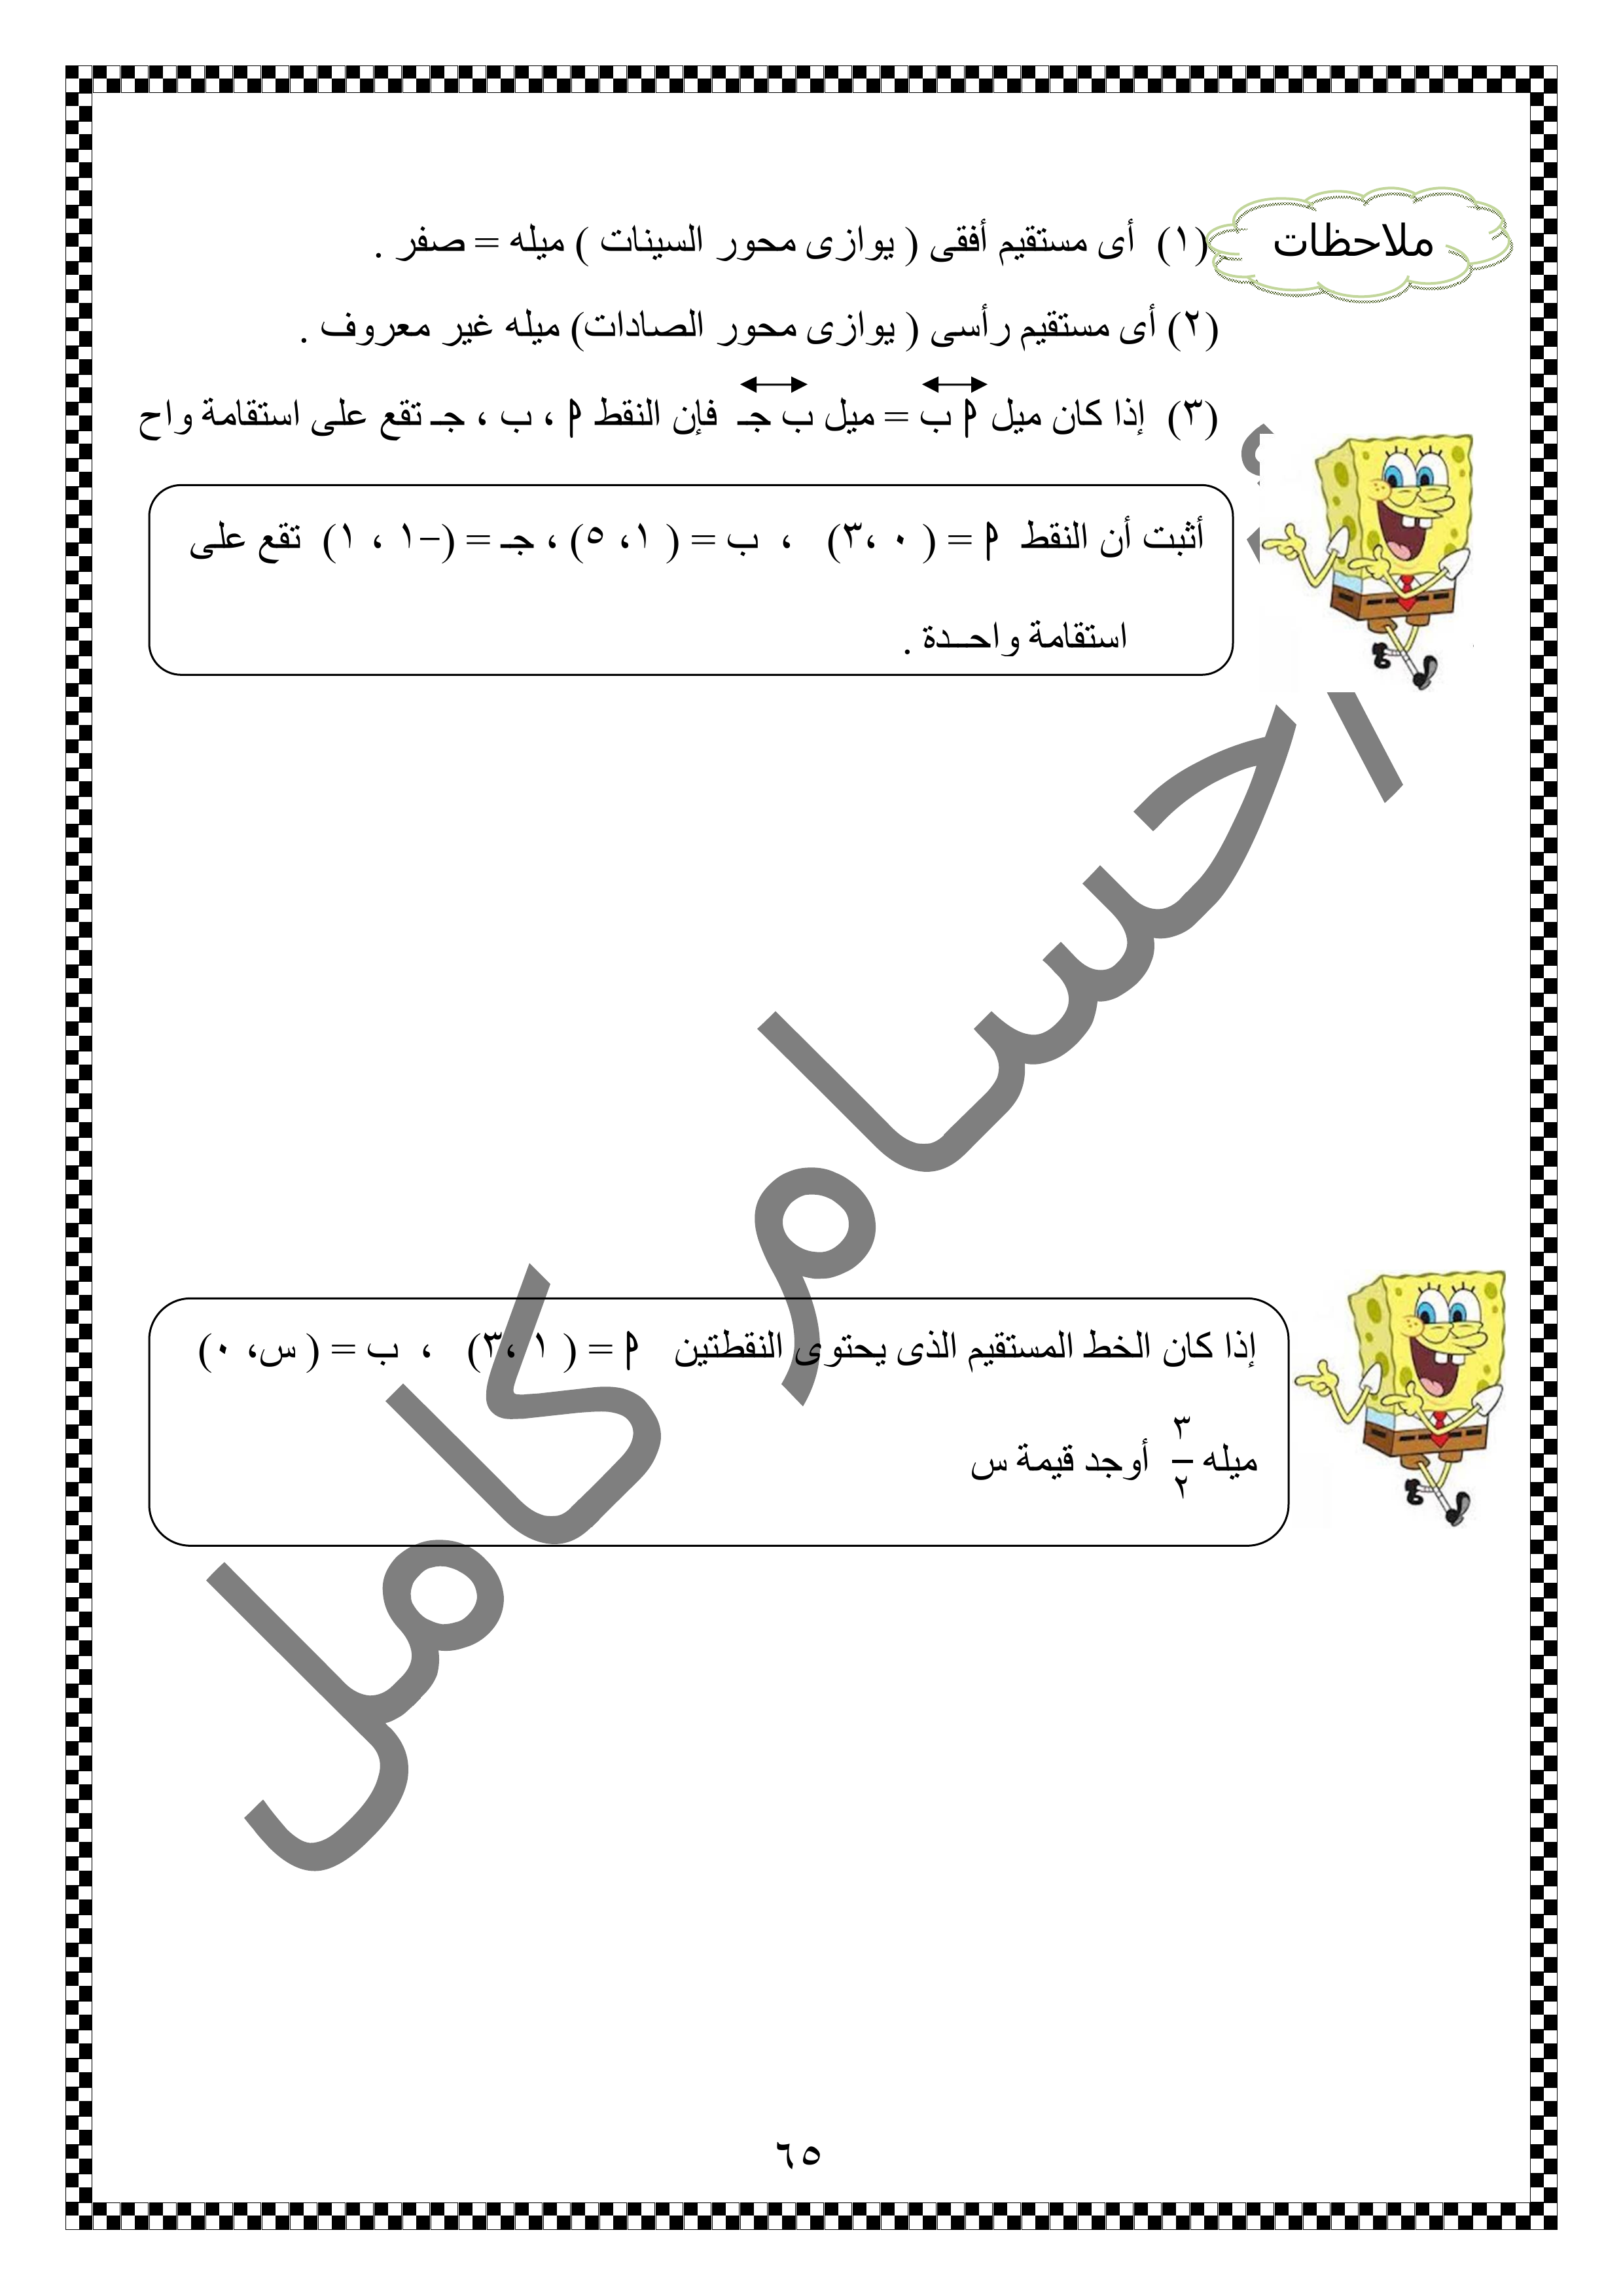 ملاحظات
(١) أى مستقيم أفقى ( يوازى محور السينات ) ميله = صفر .
(٢) أى مستقيم رأسى ( يوازى محور الصادات) ميله غير معروف .
(٣) إذا كان ميل م ب = ميل ب جـ فإن النقط م ، ب ، جـ تقع على استقامة واح
أثبت أن النقط م = ( ٠ ،٣) ، ب = ( ١، ٥) ، جـ = (–١ ، ١) تقع على
استقامة واحــدة .
إذا كان الخط المستقيم الذى يحتوى النقطتين م = ( ١ ،٣) ، ب = ( س، ٠)
ميله ٣/٢ أوجد قيمة س
حسام كامل
٦٥